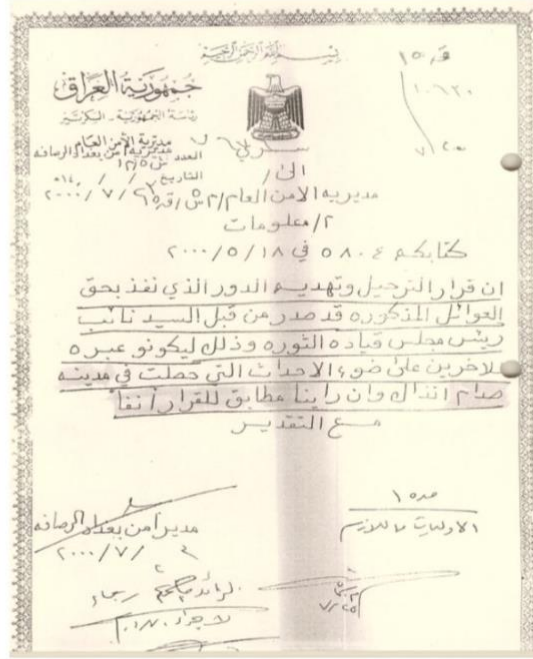 بسم الله الرحمن الرحيم
جمهورية العراق
رئاسة الجمهورية - السكرتير
مديرية الأمن العام
مديرية امن بغداد الرصافه
العدد
التاريخ / / ١٤هـ
٢٠٠٠/٧/
سري
الى/
مديريه الامن العام/
م/معلومات
كتابكم ٥٨٠٤ في ٢٠٠٠/٥/١٨
ان قرار الترحيل وتهديم الدور الذي نفذ بحق
العوائل المذكوره قد صدر من قبل السيد نائب
رئيس مجلس قياده الثوره وذلك ليكونو عبره
للاخرين على ضوء الاحداث التي حصلت في مدينه
صدام انذاك وان راينا مطابق للقرار انفا
مع التقدير
مدير امن بغداد الرصافه
٢٠٠٠/٧/
الاوليات للازم